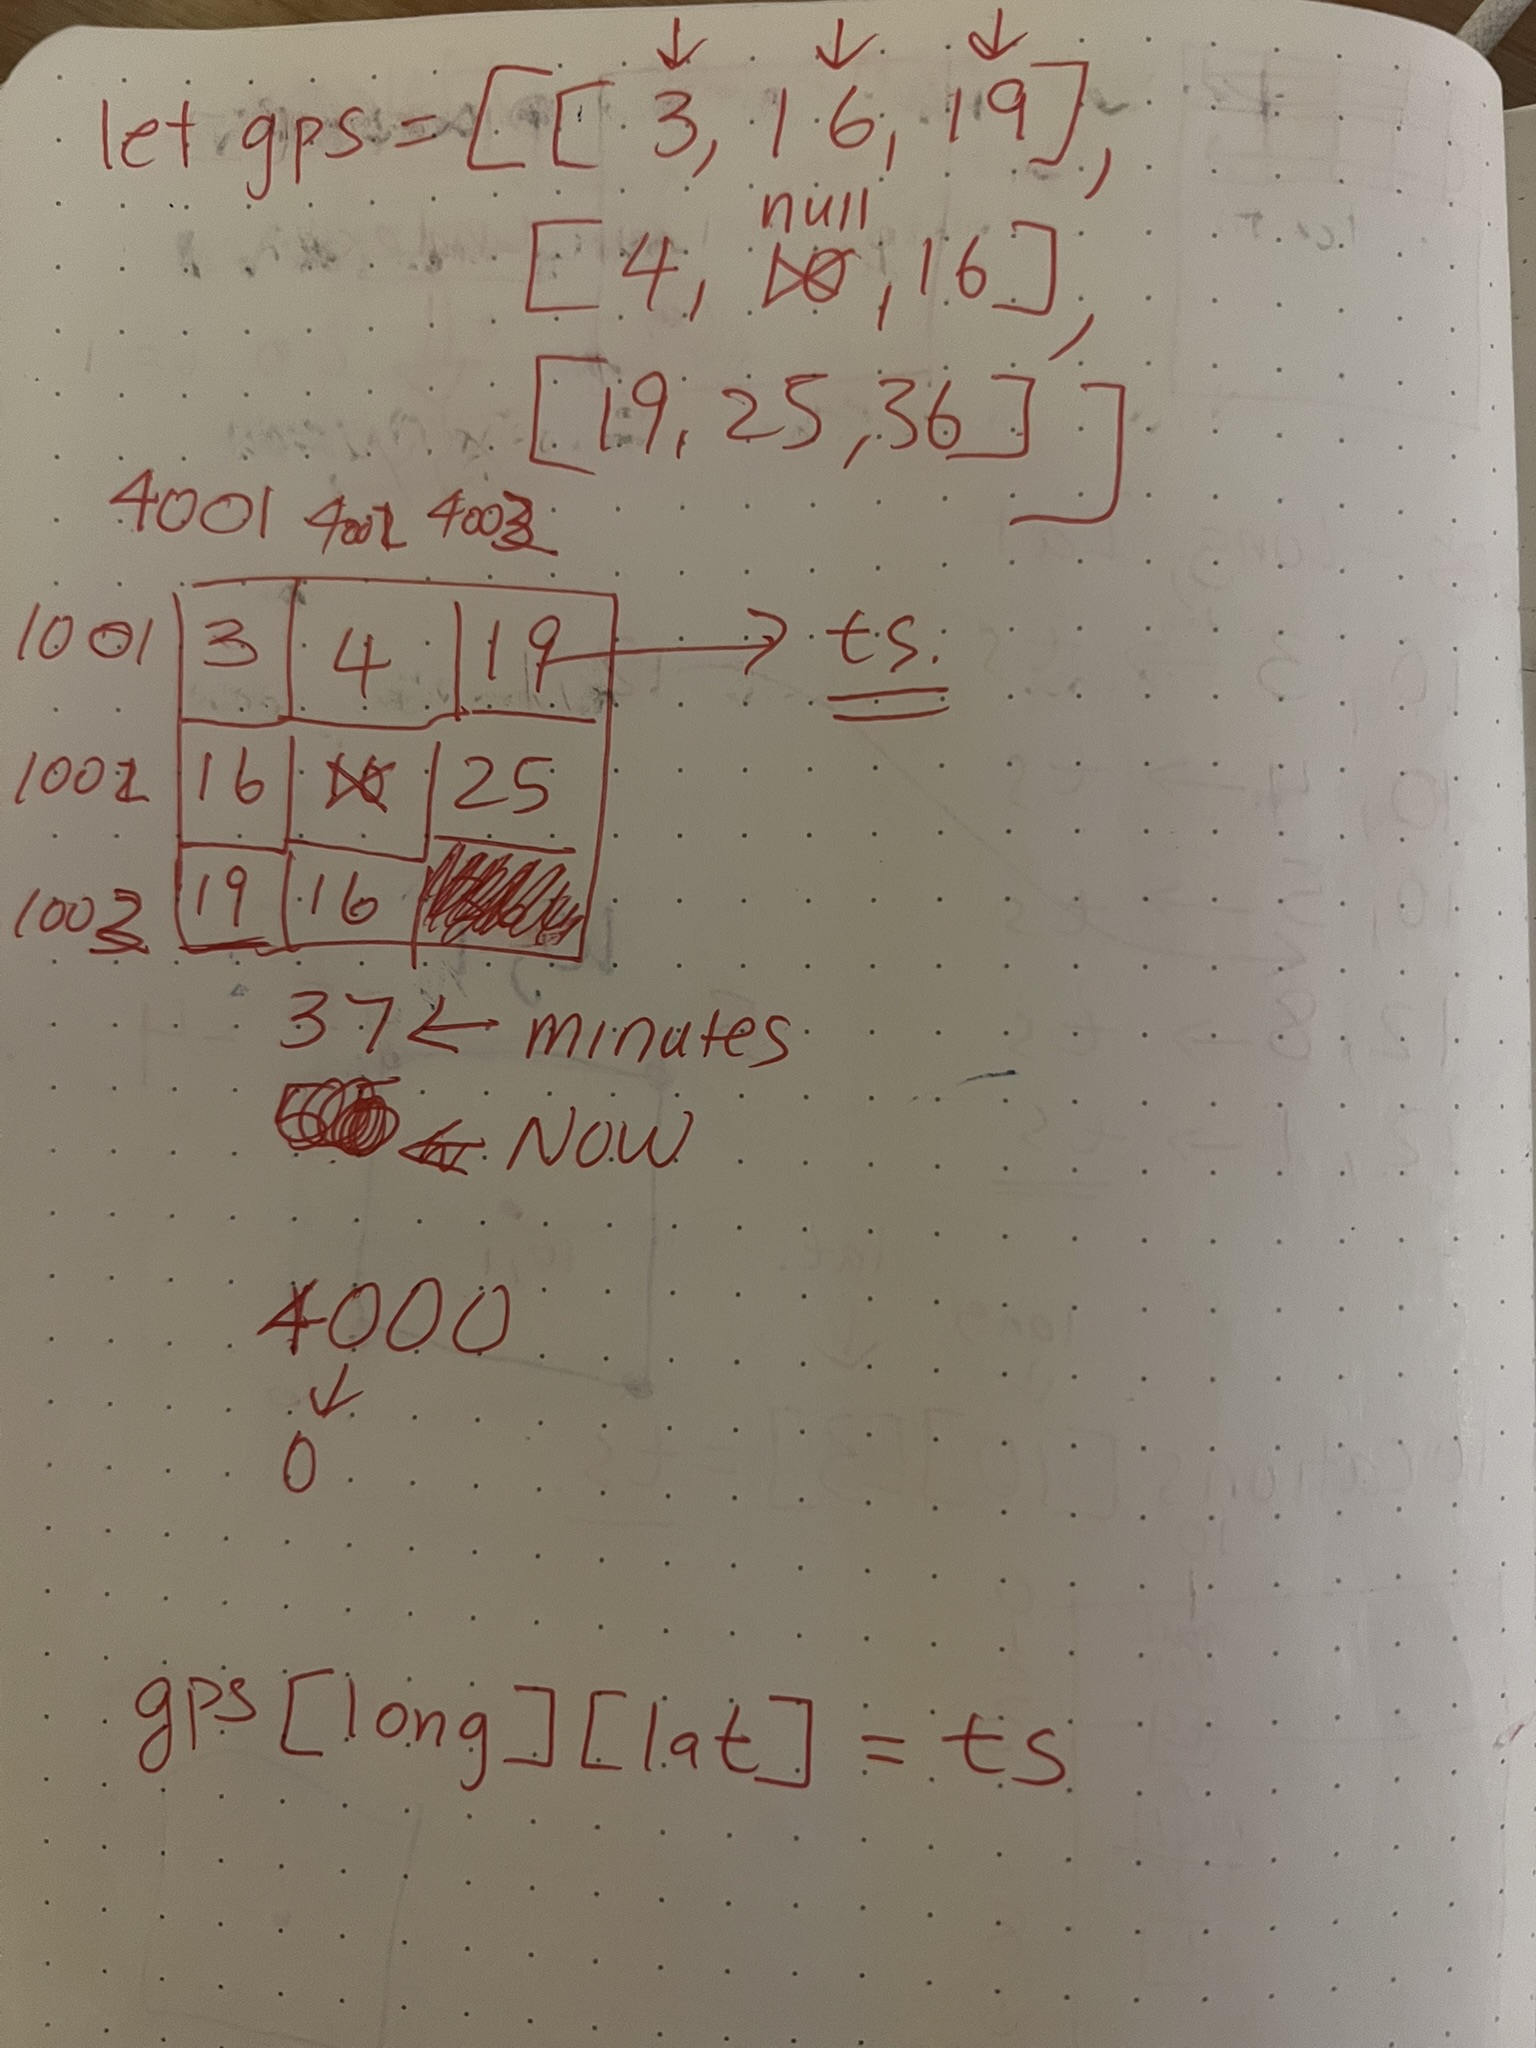 let gps = [[3, 16, 19],
null
[4, 10, 16],
[19, 25, 36]]
4001 4002 4003
1001 3 4 19 → ts.
1002 16 25
1003 19 16
37 ← minutes
← NOW
4000
↓
0
gps[long][lat] = ts